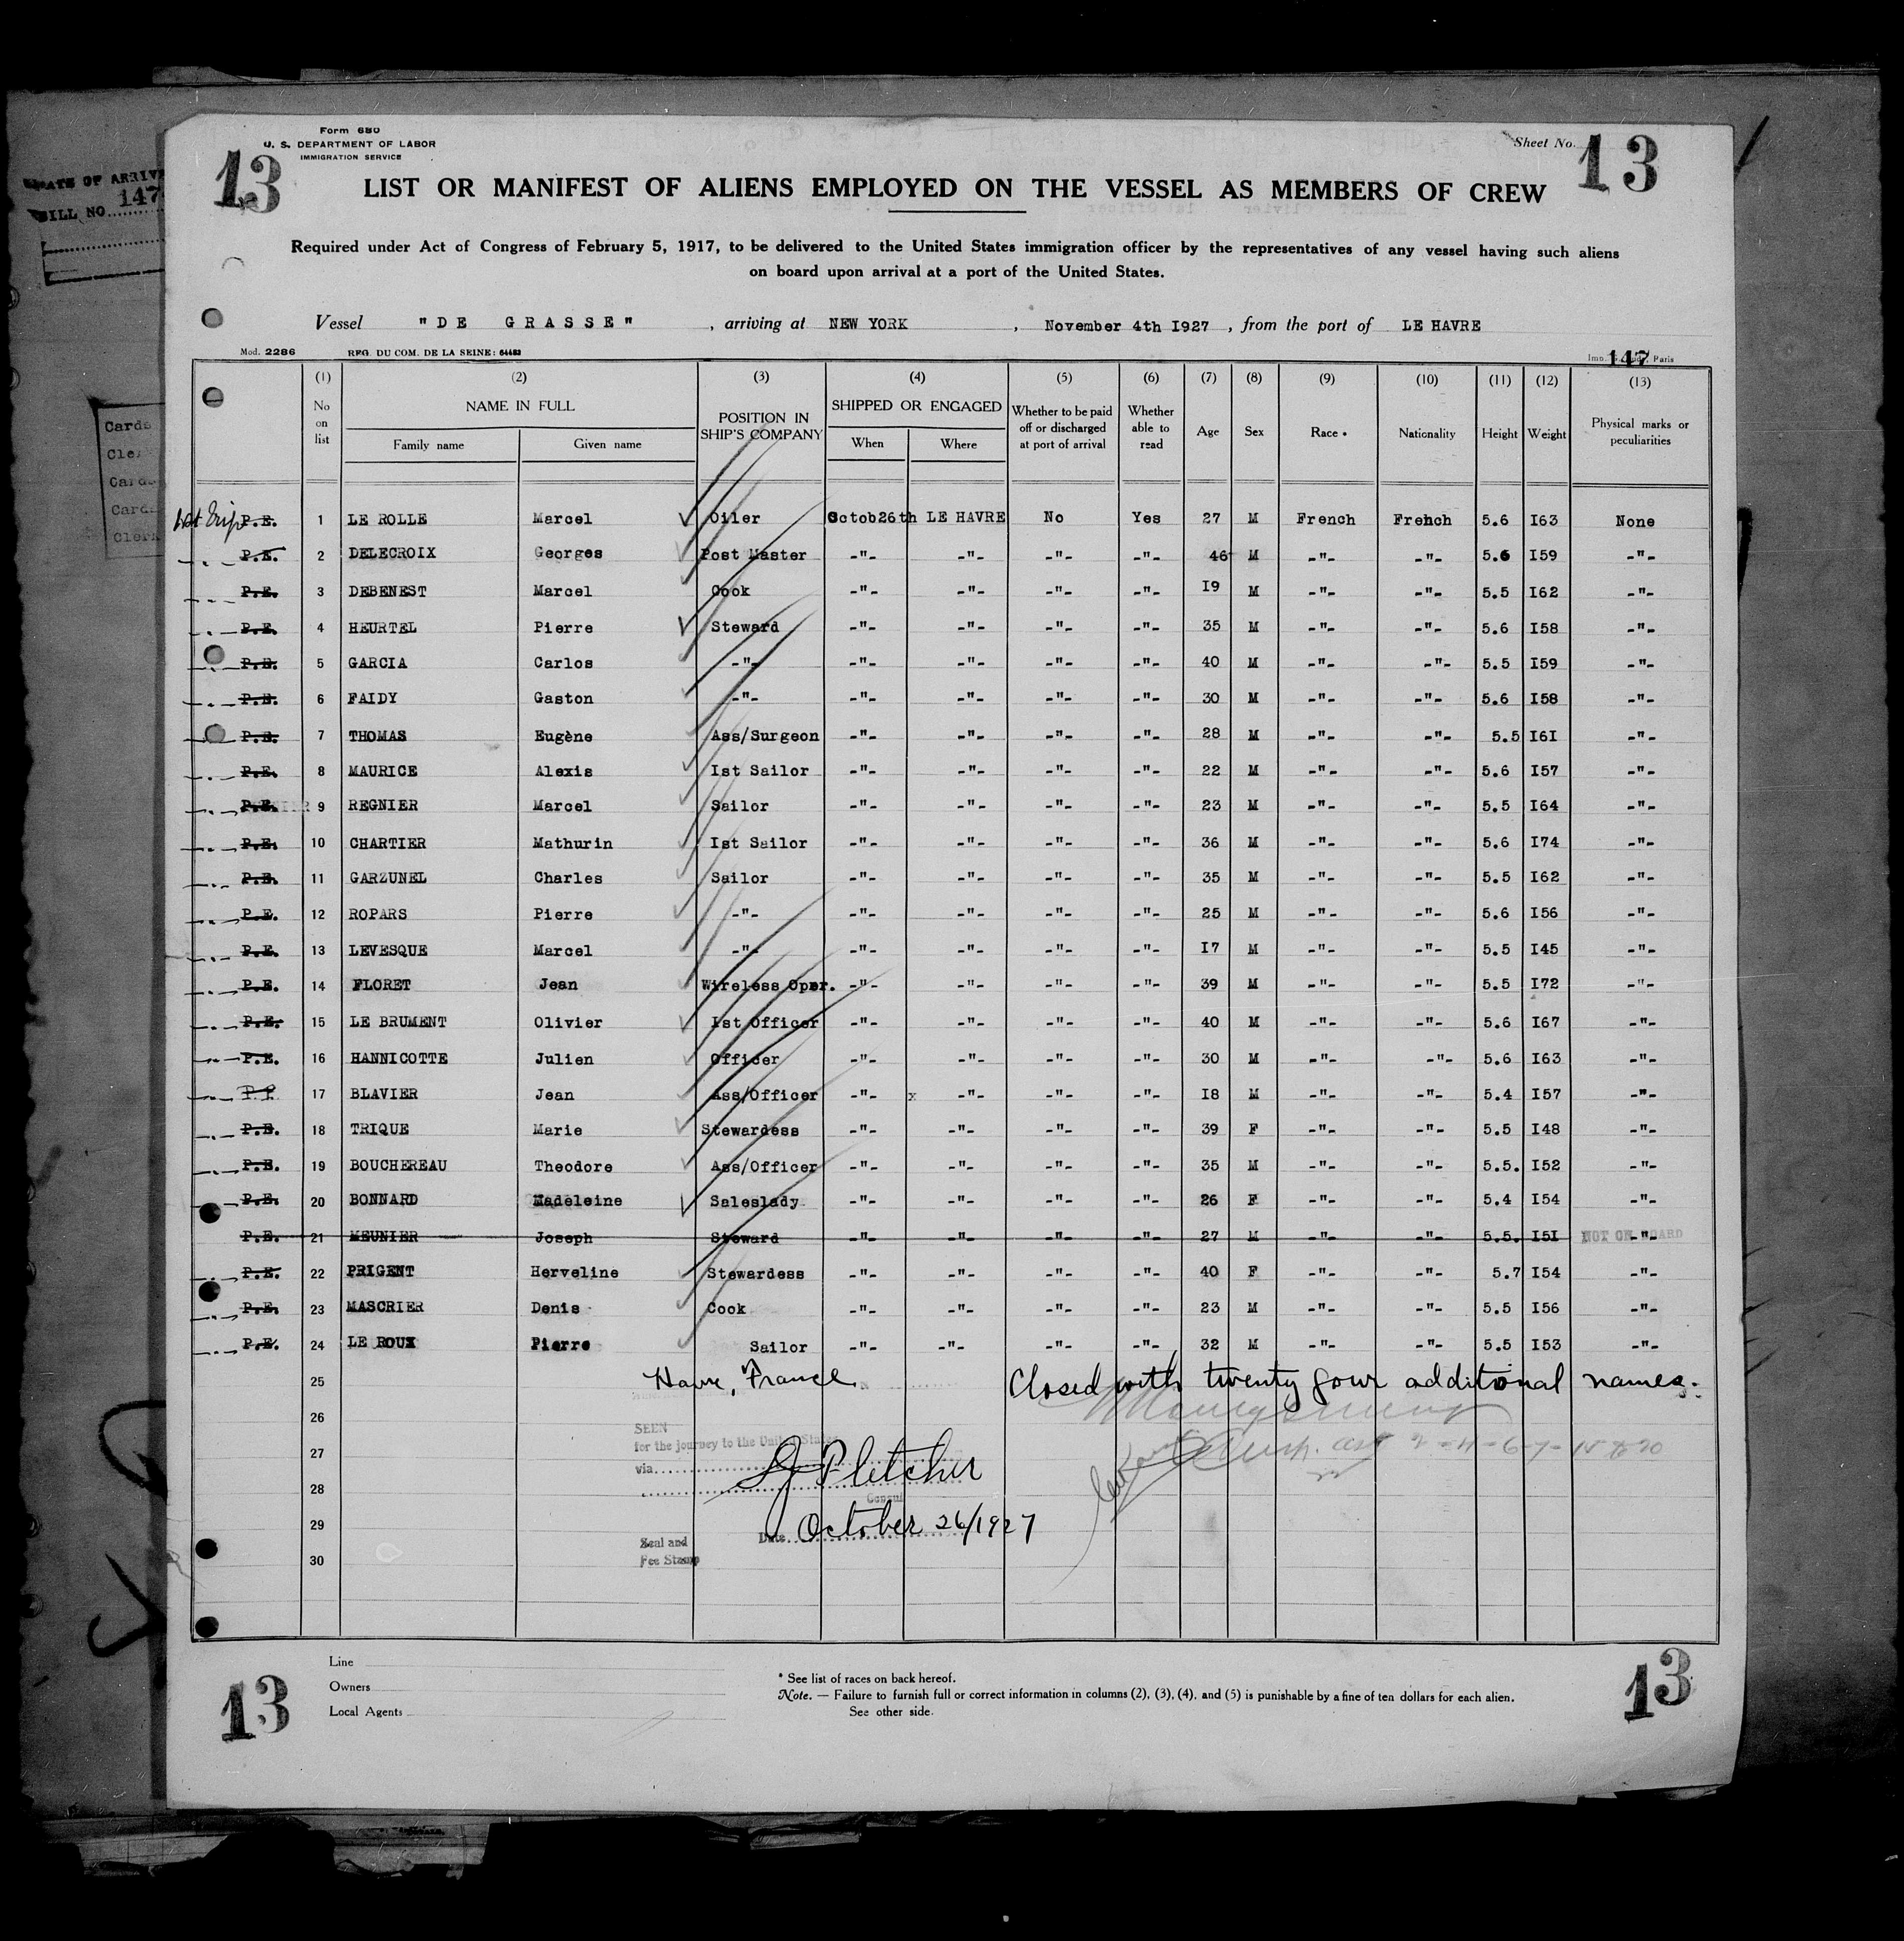 Form 680
U. S. DEPARTMENT OF LABOR
IMMIGRATION SERVICE
Sheet No.
13
13
LIST OR MANIFEST OF ALIENS EMPLOYED ON THE VESSEL AS MEMBERS OF CREW
Required under Act of Congress of February 5, 1917, to be delivered to the United States immigration officer by the representatives of any vessel having such aliens
on board upon arrival at a port of the United States.
Vessel "DE GRASSE" , arriving at NEW YORK , November 4th I927 , from the port of LE HAVRE
Mod. 2286 REG. DU COM. DE LA SEINE: 64483 147 Paris
(1) (2) (3) (4) (5) (6) (7) (8) (9) (10) (11) (12) (13)
No on list NAME IN FULL Family name Given name POSITION IN SHIP'S COMPANY SHIPPED OR ENGAGED When Where Whether to be paid off or discharged at port of arrival Whether able to read Age Sex Race * Nationality Height Weight Physical marks or peculiarities
1st Trip P.E. 1 LE ROLLE Marcel Oiler Octob26th LE HAVRE No Yes 27 M French French 5.6 I63 None
P.E. 2 DELECROIX Georges Post Master -"- -"- -"- -"- 46 M -"- -"- 5.6 I59 -"-
P.E. 3 DEBENEST Marcel Cook -"- -"- -"- -"- I9 M -"- -"- 5.5 I62 -"-
P.E. 4 HEURTEL Pierre Steward -"- -"- -"- -"- 35 M -"- -"- 5.6 I58 -"-
P.E. 5 GARCIA Carlos -"- -"- -"- -"- -"- 40 M -"- -"- 5.5 I59 -"-
P.E. 6 FAIDY Gaston -"- -"- -"- -"- -"- 30 M -"- -"- 5.6 I58 -"-
P.E. 7 THOMAS Eugène Ass/Surgeon -"- -"- -"- -"- 28 M -"- -"- 5.5 I6I -"-
P.E. 8 MAURICE Alexis Ist Sailor -"- -"- -"- -"- 22 M -"- -"- 5.6 I57 -"-
P.E. 9 REGNIER Marcel Sailor -"- -"- -"- -"- 23 M -"- -"- 5.5 I64 -"-
P.E. 10 CHARTIER Mathurin Ist Sailor -"- -"- -"- -"- 36 M -"- -"- 5.6 I74 -"-
P.E. 11 GARZUNEL Charles Sailor -"- -"- -"- -"- 35 M -"- -"- 5.5 I62 -"-
P.E. 12 ROPARS Pierre -"- -"- -"- -"- -"- 25 M -"- -"- 5.6 I56 -"-
P.E. 13 LEVESQUE Marcel -"- -"- -"- -"- -"- I7 M -"- -"- 5.5 I45 -"-
P.E. 14 FLORET Jean Wireless Oper. -"- -"- -"- -"- 39 M -"- -"- 5.5 I72 -"-
P.E. 15 LE BRUMENT Olivier Ist Officer -"- -"- -"- -"- 40 M -"- -"- 5.6 I67 -"-
P.E. 16 HANNICOTTE Julien Officer -"- -"- -"- -"- 30 M -"- -"- 5.6 I63 -"-
P.E. 17 BLAVIER Jean Ass/Officer -"- x -"- -"- -"- I8 M -"- -"- 5.4 I57 -"-
P.E. 18 TRIQUE Marie Stewardess -"- -"- -"- -"- 39 F -"- -"- 5.5 I48 -"-
P.E. 19 BOUCHEREAU Theodore Ass/Officer -"- -"- -"- -"- 35 M -"- -"- 5.5. I52 -"-
P.E. 20 BONNARD Madeleine Saleslady -"- -"- -"- -"- 26 F -"- -"- 5.4 I54 -"-
P.E. 21 MEUNIER Joseph Steward -"- -"- -"- -"- 27 M -"- -"- 5.5. I5I NOT ON BOARD -"-
P.E. 22 PRIGENT Herveline Stewardess -"- -"- -"- -"- 40 F -"- -"- 5.7 I54 -"-
P.E. 23 MASCRIER Denis Cook -"- -"- -"- -"- 23 M -"- -"- 5.5 I56 -"-
P.E. 24 LE ROUX Pierre Sailor -"- -"- -"- -"- 32 M -"- -"- 5.5 I53 -"-
25 Havre, France. Closed with twenty four additional names.
26
SEEN
for the journey to the United States
27
via
28
Fletcher
Consul
29
Date October 26/1927
Seal and
Fee Stamp
30
Line
Owners
Local Agents
* See list of races on back hereof.
Note. — Failure to furnish full or correct information in columns (2), (3), (4), and (5) is punishable by a fine of ten dollars for each alien.
See other side.
13
13
BILL NO. 147
Cards
Card
Card
Clerk